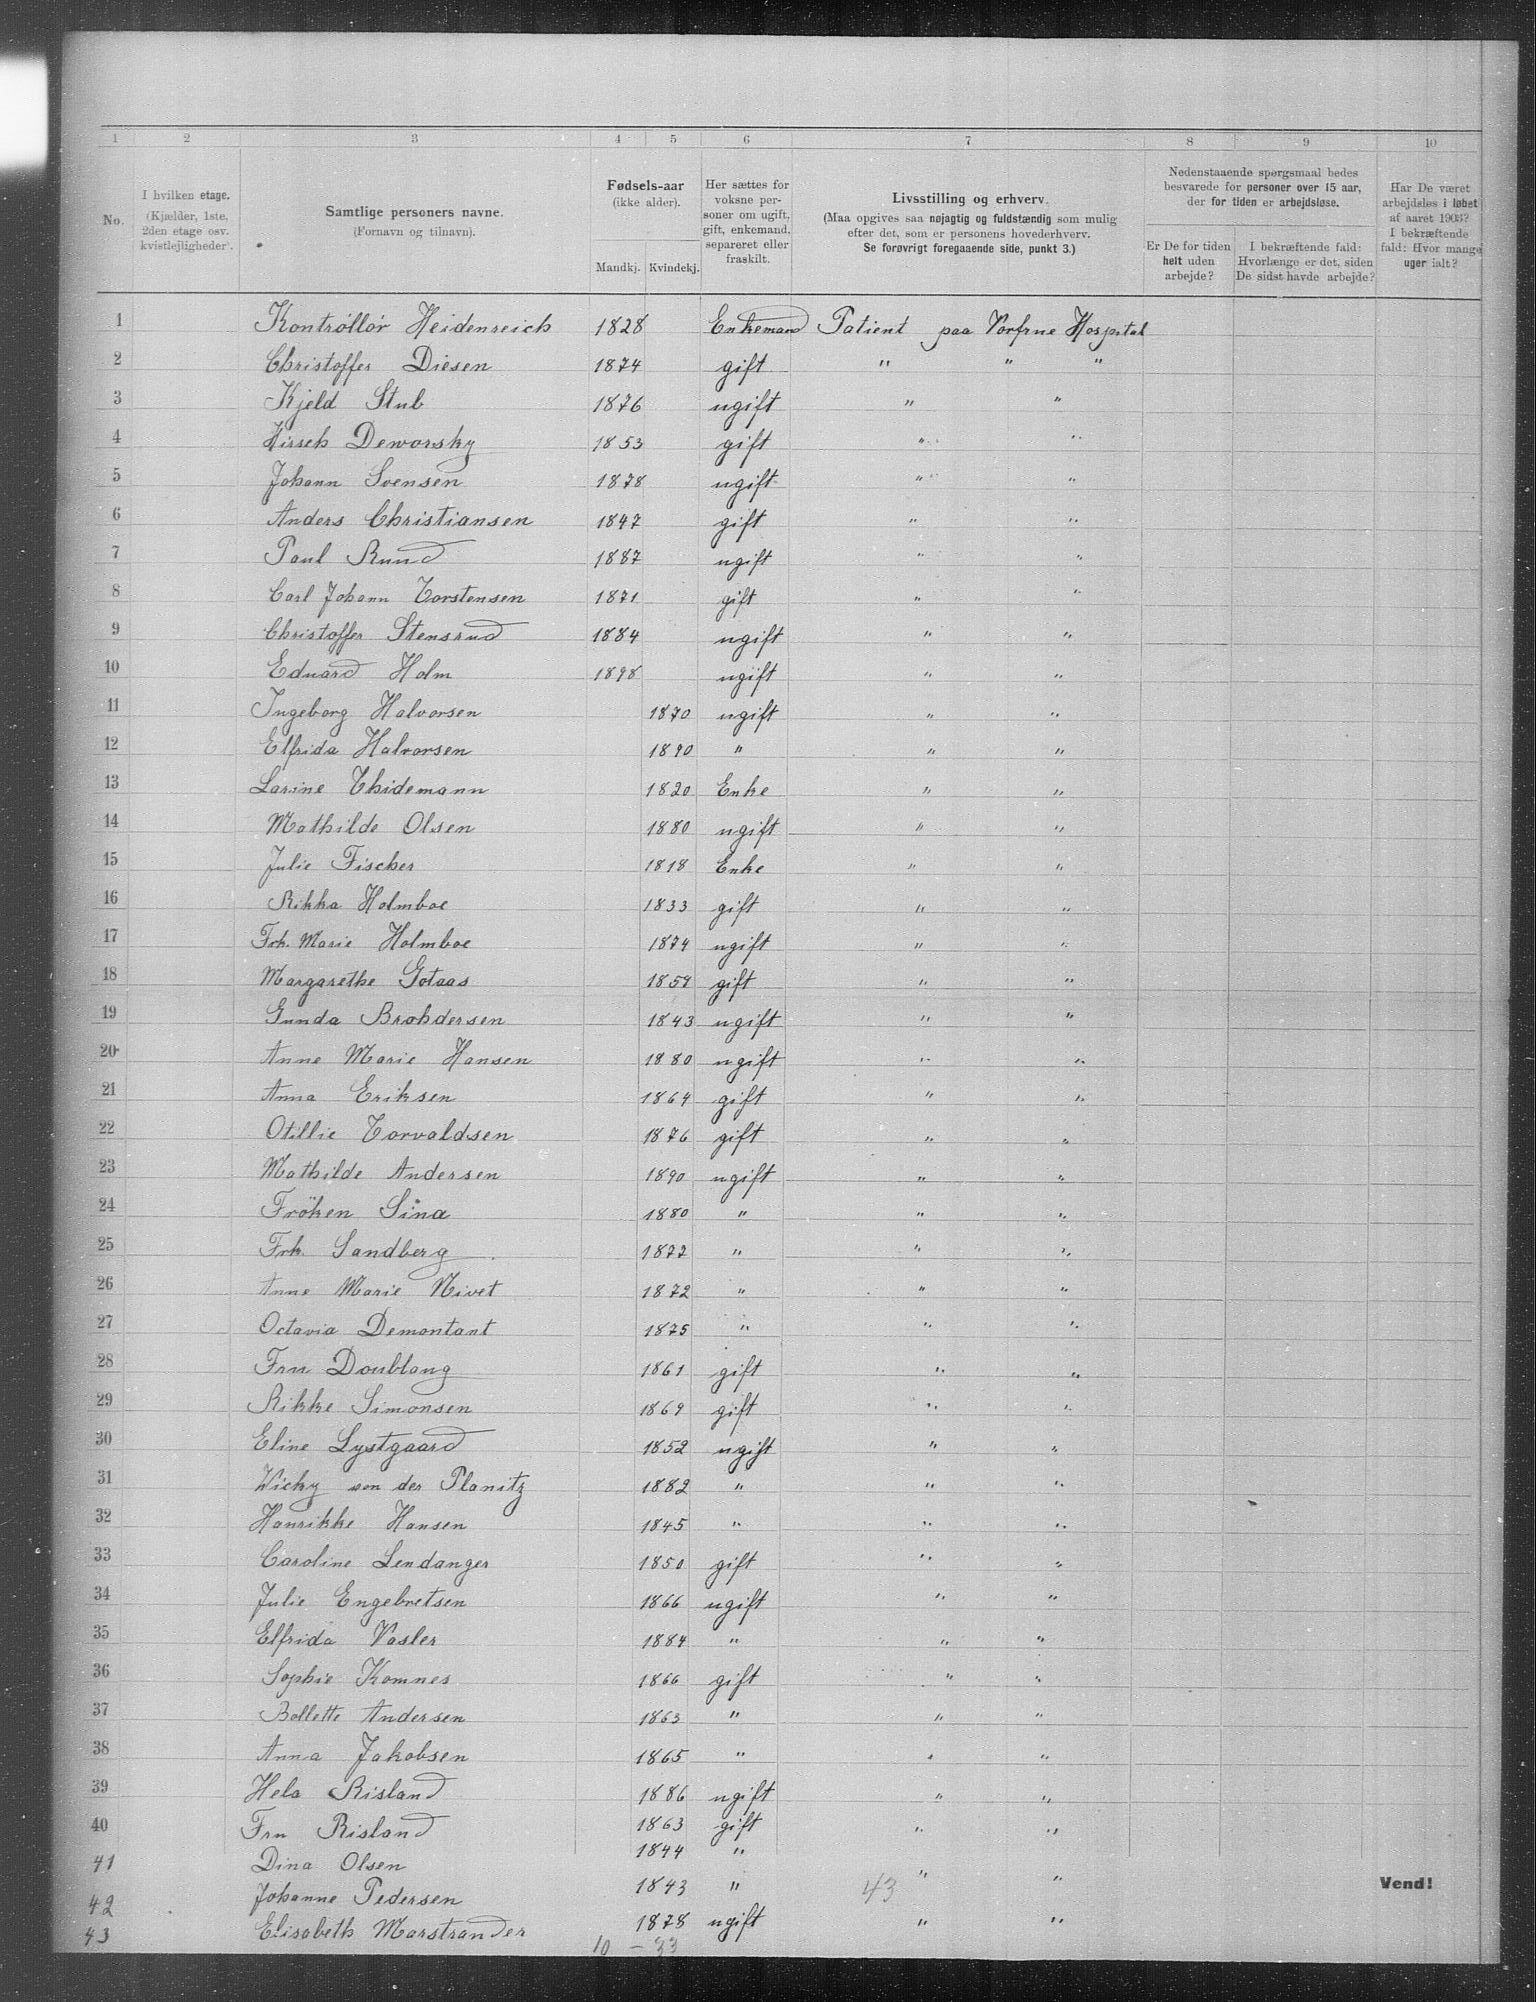 1 2 3 4 5 6 7 8 9 10
No. | I hvilken etage. (Kjælder, 1ste, 2den etage osv. kvistleiligheder). | Samtlige personers navne. (Fornavn og tilnavn). | Fødsels-aar (ikke alder). Mandkj. Kvindekj. | Her sættes for voksne personer om ugift, gift, enkemand, separeret eller fraskilt. | Livsstilling og erhverv. (Maa opgives saa nøjagtig og fuldstændig som mulig efter det, som er personens hovederhverv. Se forøvrigt foregaaende side, punkt 3.) | Nedenstaaende spørgsmaal bedes besvarede for personer over 15 aar, der for tiden er arbejdsløse. Er De for tiden helt uden arbejde? | I bekræftende fald: Hvorlænge er det, siden De sidst havde arbejde? | Har De været arbejdsløs i løbet af aaret 1903? I bekræftende fald: Hvor mange uger ialt?
1 Kontrollør Heidenreich 1828 Enkemand Patient paa Vorfrue Hospital
2 Christoffer Diesen 1874 gift " " "
3 Kjeld Stub 1876 ugift " "
4 Hirsch Deworsky 1853 gift " "
5 Johann Svensen 1878 ugift " "
6 Anders Christiansen 1847 gift " "
7 Paul Ruud 1887 ugift " "
8 Carl Johann Torstensen 1871 gift " "
9 Christoffer Stensrud 1884 ugift " "
10 Eduard Holm 1898 ugift " "
11 Ingeborg Halvorsen 1870 ugift " "
12 Elfrida Halvorsen 1890 " " "
13 Larine Thidemann 1820 Enke " "
14 Mathilde Olsen 1880 ugift " "
15 Julie Fischer 1818 Enke " "
16 Rikka Holmboe 1833 gift " "
17 Frk. Marie Holmboe 1874 ugift " "
18 Margarethe Gotaas 1859 gift " "
19 Gunda Brokdersen 1843 ugift " "
20 Anne Marie Hansen 1880 ugift " "
21 Anna Eriksen 1864 gift " "
22 Otillie Torvaldsen 1876 gift " "
23 Mathilde Andersen 1890 ugift " "
24 Fröken Sina 1880 " " "
25 Frk. Sandberg 1872 " " "
26 Anne Marie Nivet 1872 " " "
27 Octavia Demontant 1875 " " "
28 Fru Doublang 1861 gift " "
29 Rikke Simonsen 1869 gift " "
30 Eline Lystgaard 1852 ugift " "
31 Vicky von der Planitz 1882 " " "
32 Hanrikke Hansen 1845 " " "
33 Caroline Lendanger 1850 gift " "
34 Julie Engebretsen 1866 ugift " "
35 Elfrida Vasler 1884 " " "
36 Sophie Komnes 1866 gift " "
37 Bollette Andersen 1863 " " "
38 Anna Jakobsen 1865 " " "
39 Hela Risland 1886 ugift " "
40 Fru Risland 1863 gift " "
41 Dina Olsen 1844 " " "
Vend!
42 Johanne Pedersen 1843 " 43
43 Elisabeth Marstrander 1878 ugift " "
10 - 33